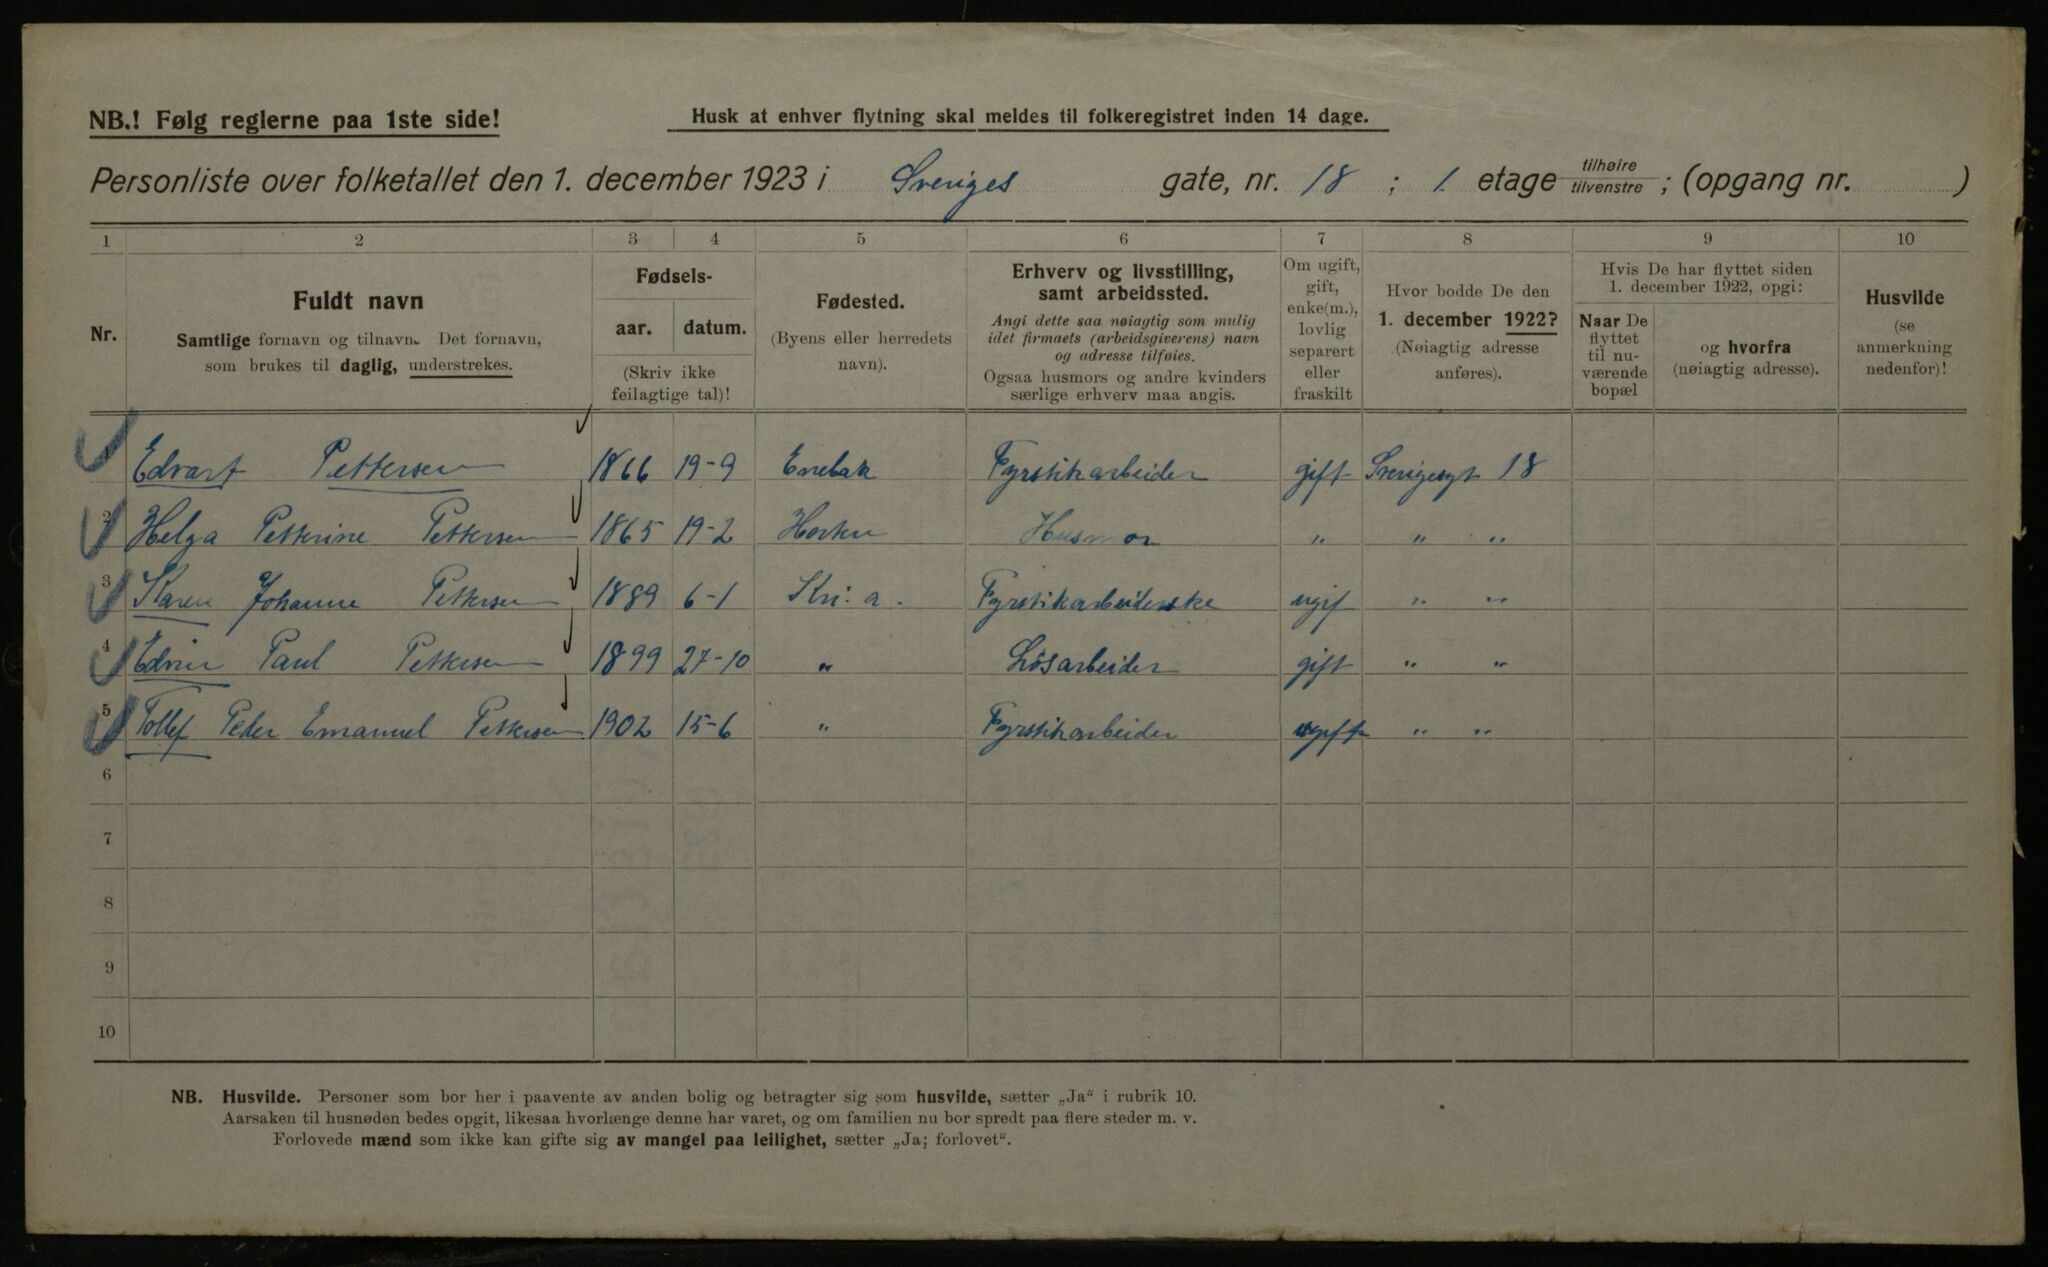 NB.! Følg reglerne paa 1ste side!
Husk at enhver flytning skal meldes til folkeregistret inden 14 dage.
Personliste over folketallet den 1. december 1923 i Sveriges gate, nr. 18 ; 1. etage tilhøire tilvenstre ; (opgang nr. )
1 2 3 4 5 6 7 8 9 10
Nr.
Fuldt navn
Samtlige fornavn og tilnavn. Det fornavn,
som brukes til daglig, understrekes.
Fødsels-
aar. datum.
(Skriv ikke
feilagtige tal)!
Fødested.
(Byens eller herredets
navn).
Erhverv og livsstilling,
samt arbeidssted.
Angi dette saa nøiagtig som mulig
idet firmaets (arbeidsgiverens) navn
og adresse tilføies.
Ogsaa husmors og andre kvinders
særlige erhverv maa angis.
Om ugift,
gift,
enke(m.),
lovlig
separert
eller
fraskilt
Hvor bodde De den
1. december 1922?
(Nøiagtig adresse
anføres).
Hvis De har flyttet siden
1. december 1922, opgi:
Naar De
flyttet
til nu-
værende
bopæl
og hvorfra
(nøiagtig adresse).
Husvilde
(se
anmerkning
nedenfor)!
Edvart Pettersen 1866 19-9 Enebak Fyrstikarbeider gift Sverigesgt 18
2 Helga Petterine Pettersen 1865 19-2 Husmor " " "
3 Karen Johanne Pettersen 1889 6-1 Kri:a. Fyrstikarbeiderske ugif " "
4 Edvin Paul Pettersen 1899 27-10 " Lösarbeider gift " "
5 Tollef Peder Emanuel Pettersen 1902 15-6 " Fyrstikarbeider ugift " "
6
7
8
9
10
NB. Husvilde. Personer som bor her i paavente av anden bolig og betragter sig som husvilde, sætter „Ja" i rubrik 10.
Aarsaken til husnøden bedes opgit, likesaa hvorlænge denne har varet, og om familien nu bor spredt paa flere steder m. v.
Forlovede mænd som ikke kan gifte sig av mangel paa leilighet, sætter „Ja; forlovet".